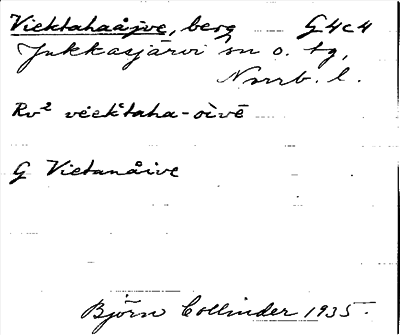 Viektahaåjve, berg G4c4
Jukkasjärvi sn o. tg,
Norrb. l.
Rv² viektaha-oìvē
G Vietanåive
Björn Collinder 1935.